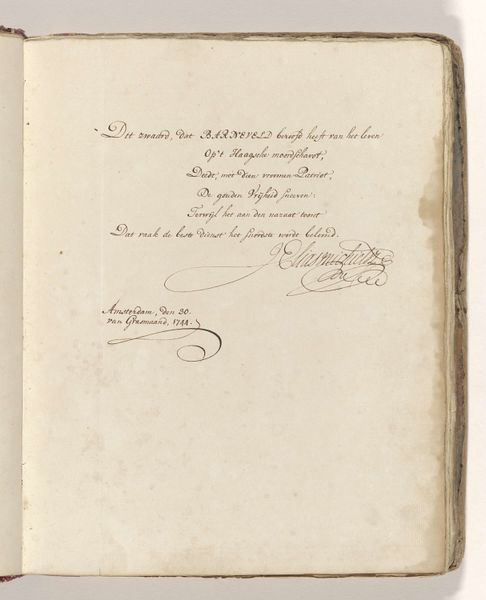 Dit zwaard, dat BARNEVELD berooft heeft van het leven
Op't Haagsche moordschavot,
Deedt, met dien vroomen Patriot,
De gouden Vrijheid sneeven:
Terwijl het aan den nazaat toont
Dat vaak de beste dienst het snoodste wordt beloond.
Amsterdam, den 30.
van Grasmaand, 1744.